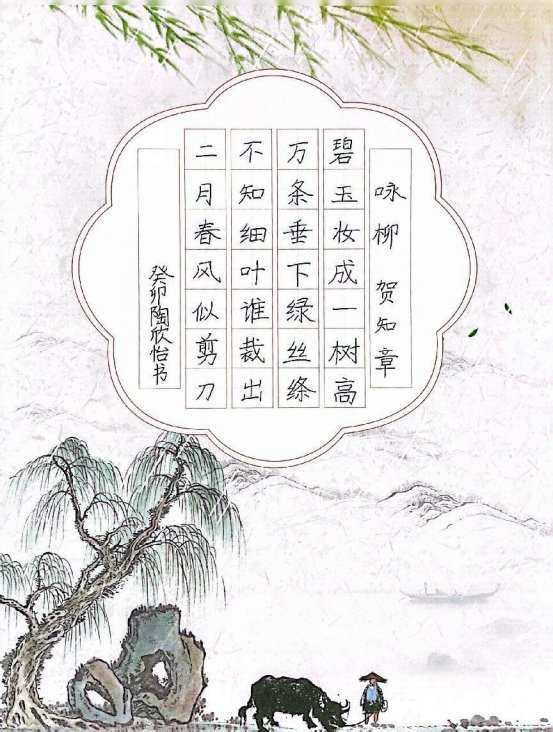 咏柳 贺知章
碧玉妆成一树高
万条垂下绿丝绦
不知细叶谁裁出
二月春风似剪刀
癸卯陶欣怡书